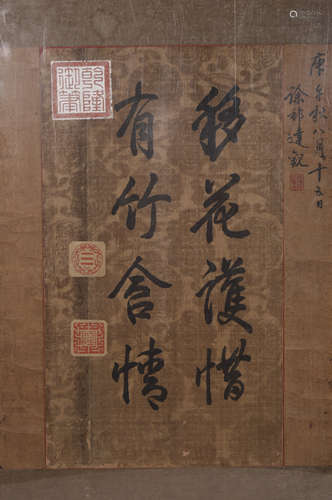 移花護惜
有竹含情
乾隆御筆
八月十五日
徐邦達觀
三